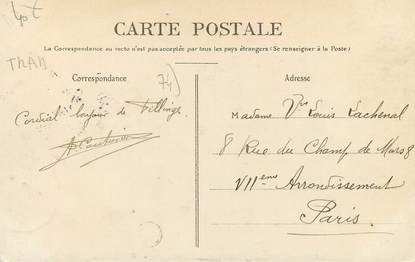 40€
CARTE POSTALE
La Correspondance au recto n'est pas acceptée par tous les pays étrangers (Se renseigner à la Poste)
THAM
Correspondance
Adresse
74)
Cordial bonjour de Fillinge
Madame Vve Louis Lachenal
8 Rue du Champ de Mars 8
VIIeme Arrondissement
Paris.